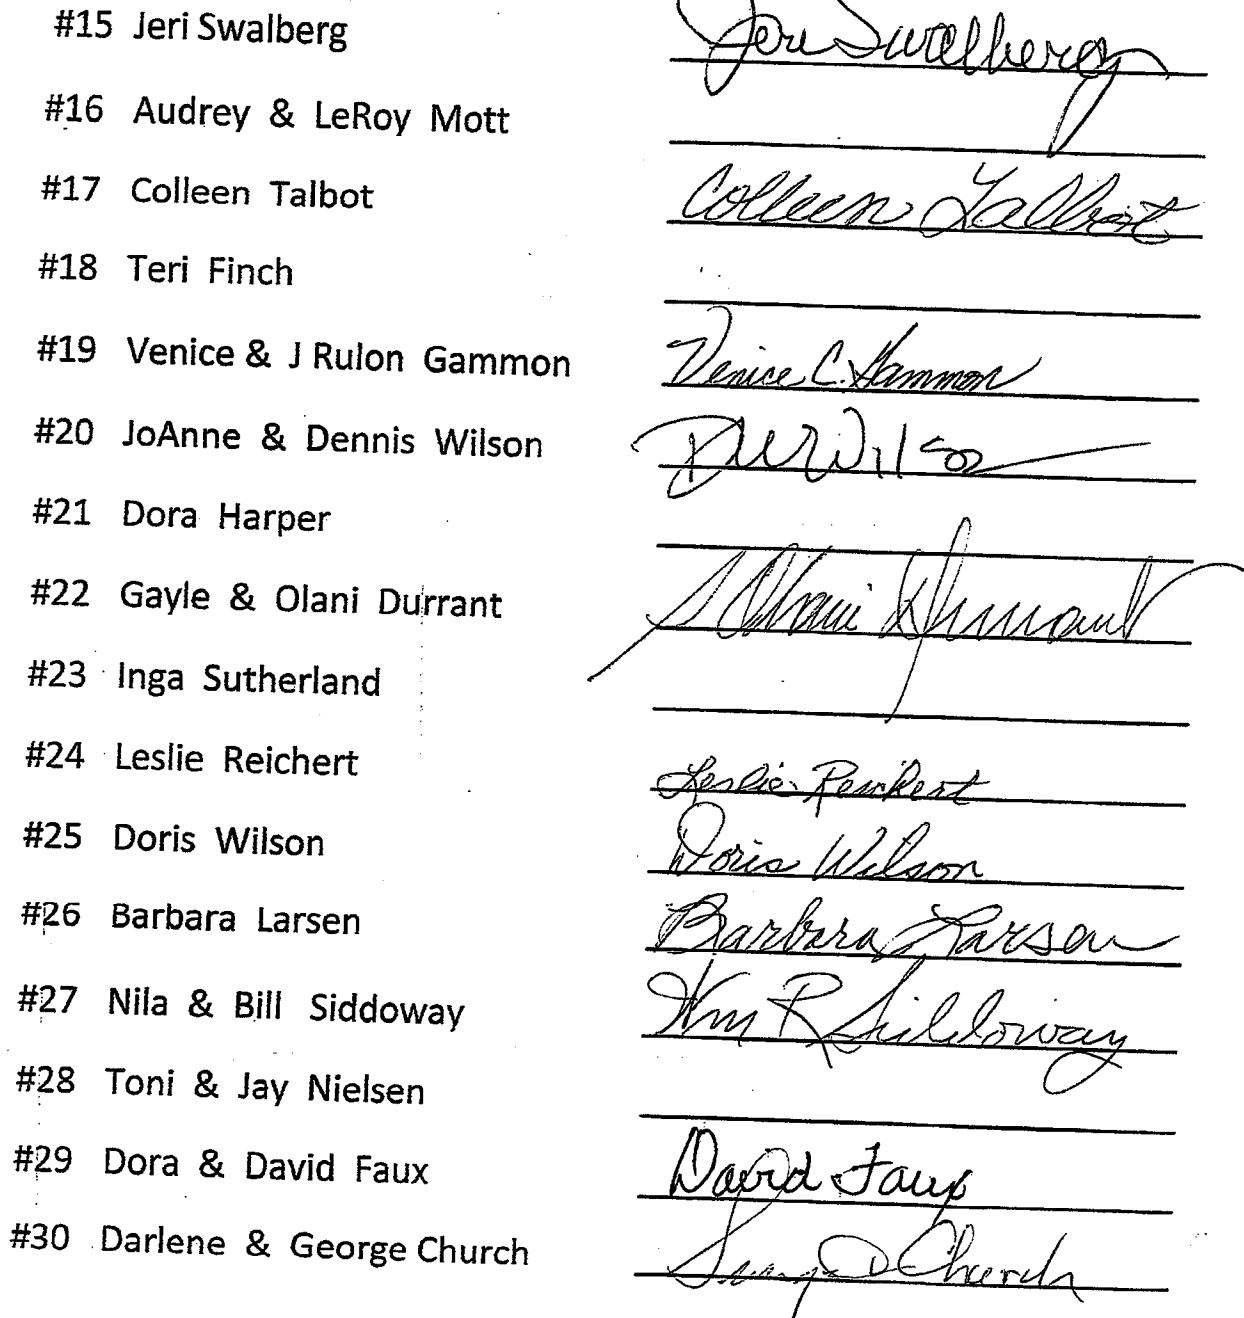 #15 Jeri Swalberg Jeri Swalberg
#16 Audrey & LeRoy Mott
#17 Colleen Talbot Colleen Talbot
#18 Teri Finch
#19 Venice & J Rulon Gammon Venice C. Gammon
#20 JoAnne & Dennis Wilson Wilson
#21 Dora Harper
#22 Gayle & Olani Durrant Olani Durrant
#23 Inga Sutherland
#24 Leslie Reichert Leslie Reichert
#25 Doris Wilson Doris Wilson
#26 Barbara Larsen Barbara Larsen
#27 Nila & Bill Siddoway Wm R Siddoway
#28 Toni & Jay Nielsen
#29 Dora & David Faux David Faux
#30 Darlene & George Church George D Church